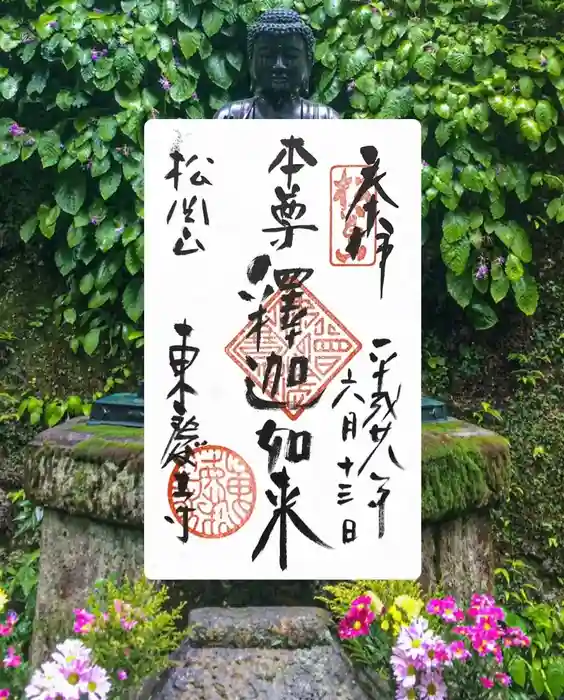 奉拝
平成廿八年
六月十三日
本尊
釋迦如来
松岡山
東慶寺